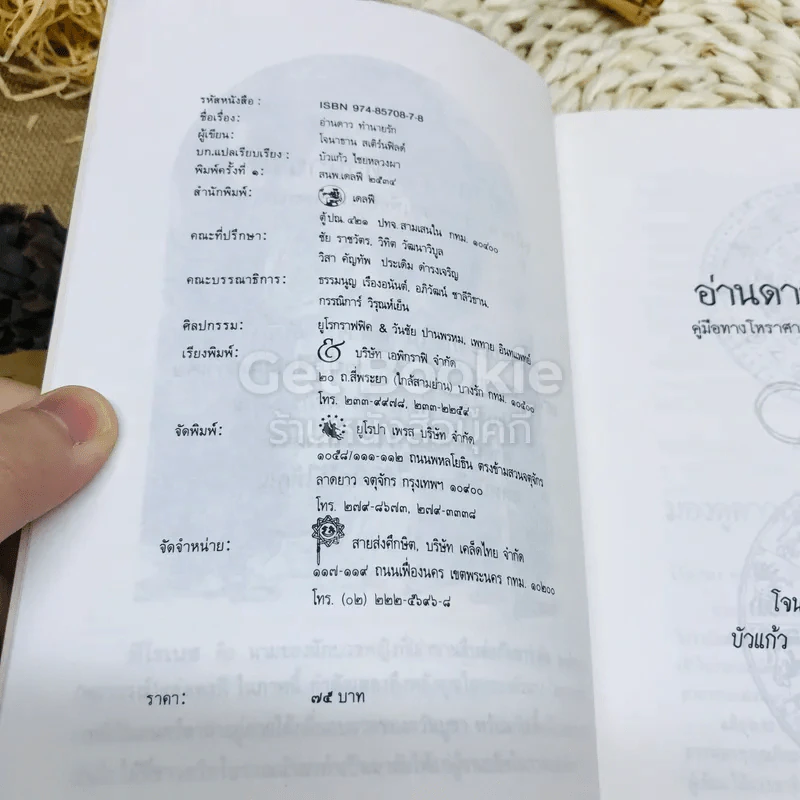 รหัสหนังสือ : ISBN 974-85708-7-8
ชื่อเรื่อง: อ่านดาว ทำนายรัก
ผู้เขียน: โจนาธาน สเติร์นฟิลด์
บก.แปลเรียบเรียง : บัวแก้ว ไชยหลวงผา
พิมพ์ครั้งที่ ๑: สนพ.เดลฟี ๒๕๓๔
สำนักพิมพ์: เดลฟี
ตู้ปณ.๔๒๑ ปทจ.สามเสนใน กทม. ๑๐๔๐๐
คณะที่ปรึกษา: ชัย ราชวัตร, วิทิต วัฒนาวิบูล
วิสา คัญทัพ ประเดิม ดำรงเจริญ
คณะบรรณาธิการ: ธรรมนูญ เรืองอนันต์, อภิวัฒน์ ชาลีวิชาน,
กรรณิการ์ วิรุฬห์เย็น
ศิลปกรรม: ยูโรกราฟฟิค & วันชัย ปานพรหม, เพทาย อินทแพทย์
เรียงพิมพ์: & บริษัท เอพิกราฟิ จำกัด
๒๐ ถ.สี่พระยา (ใกล้สามย่าน) บางรัก กทม. ๑๐๕๐๐
โทร. ๒๓๓-๙๙๗๘, ๒๓๓-๒๒๕๙
จัดพิมพ์: ยูโรปา เพรส บริษัท จำกัด
๑๐๕๘/๑๑๑-๑๑๒ ถนนพหลโยธิน ตรงข้ามสวนจตุจักร
ลาดยาว จตุจักร กรุงเทพฯ ๑๐๙๐๐
โทร. ๒๗๙-๘๖๗๓, ๒๗๙-๓๓๓๘
จัดจำหน่าย: สายส่งศึกษิต, บริษัท เคล็ดไทย จำกัด
๑๑๗-๑๑๙ ถนนเฟื่องนคร เขตพระนคร กทม. ๑๐๒๐๐
โทร. (๐๒) ๒๒๒-๕๖๙๖-๘
ราคา: ๗๕ บาท
Get Bookie
ร้านหนังสือบุ๊คกี้
อ่านดาว
คู่มือทางโหราศา
โจน
บัวแก้ว